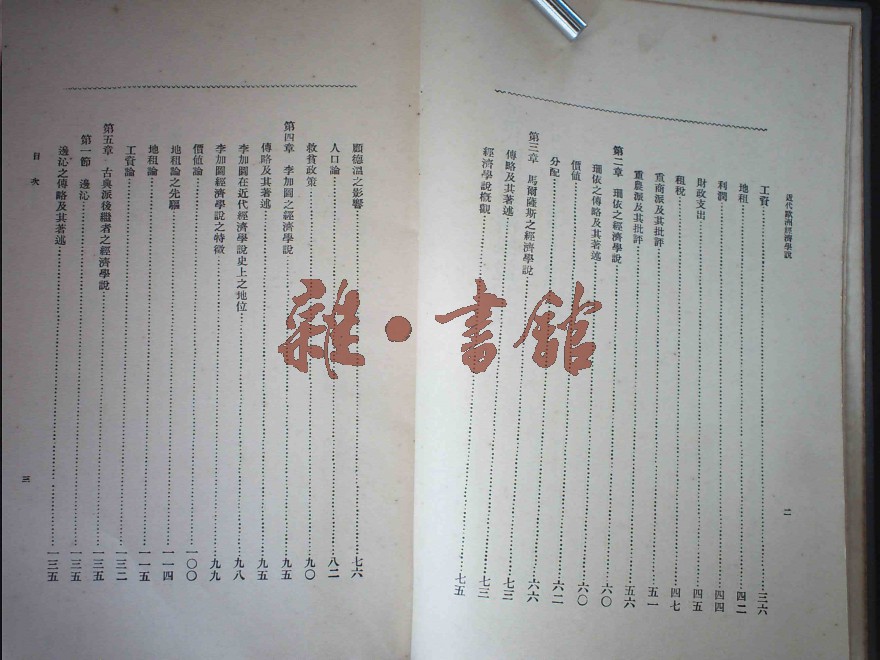 近代歐洲經濟學說
二
工資 三六
地租 四二
利潤 四四
財政支出 四五
租稅 四七
重商派及其批評 五一
重農派及其批評 五六
第二章 瑞依之經濟學說 六〇
瑞依之傳略及其著述 六〇
價値 六二
分配 六六
第三章 馬爾薩斯之經濟學說 七三
傳略及其著述 七三
經濟學說槪觀 七五
顧德溫之影響 七六
人口論 八二
救貧政策 九〇
第四章 李加圖之經濟學說 九五
傳略及其著述 九五
李加圖在近代經濟學說史上之地位 九八
李加圖經濟學說之特徵 九九
價値論 一〇〇
地租論之先驅 一一四
地租論 一一五
工資論 一三二
第五章 古典派後繼者之經濟學說 一三五
第一節 邊沁 一三五
邊沁之傳略及其著述 一三五
目次
三
雜·書館